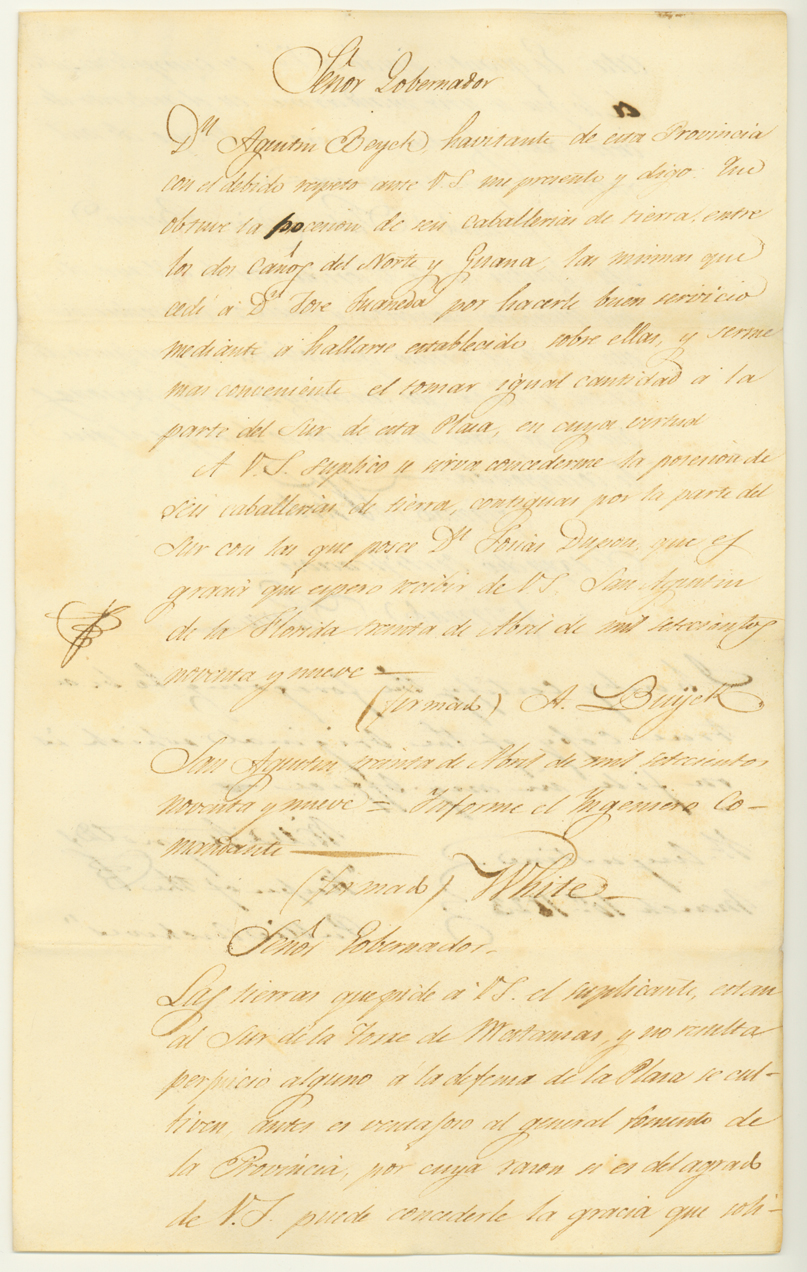 Señor Gobernador
Dn Agustin Beyck, havitante de esta Provincia
con el debido respeto ante V.S. me presento y digo: Que
obtuve la pocecion de seis caballerias de tierra, entre
los dos Caños del Norte y Guana, las mismas que
cedi á Dn Jose Juaneda por hacerle buen servicio
mediante á hallarse establecido sobre ellas, y serme
mas conveniente el tomar igual cantidad á la
parte del Sur de esta Plaza, en cuya virtud
A V.S. suplico se sirva concederme la posesion de
seis caballerias de tierra, contiguas por la parte del
Sur con las que posee Dn Josias Dupon, que es
gracia que espero recibir de V.S. San Agustin
de la Florida treinta de Abril de mil setecientos
noventa y nueve =
(firmado) A. Buyck
San Agustin treinta de Abril de mil setecientos
noventa y nueve = Informe el Ingeniero Co-
mandante
(firmado) White
Señor Gobernador
Las tierras que pide á V.S. el suplicante, estan
al Sur de la Torre de Matanzas, y no resulta
perjuicio alguno á la defensa de la Plaza se cul-
tiven, antes es ventajoso al general fomento de
la Provincia, por cuya razon si es del agrado
de V.S. puede concederle la gracia que soli-